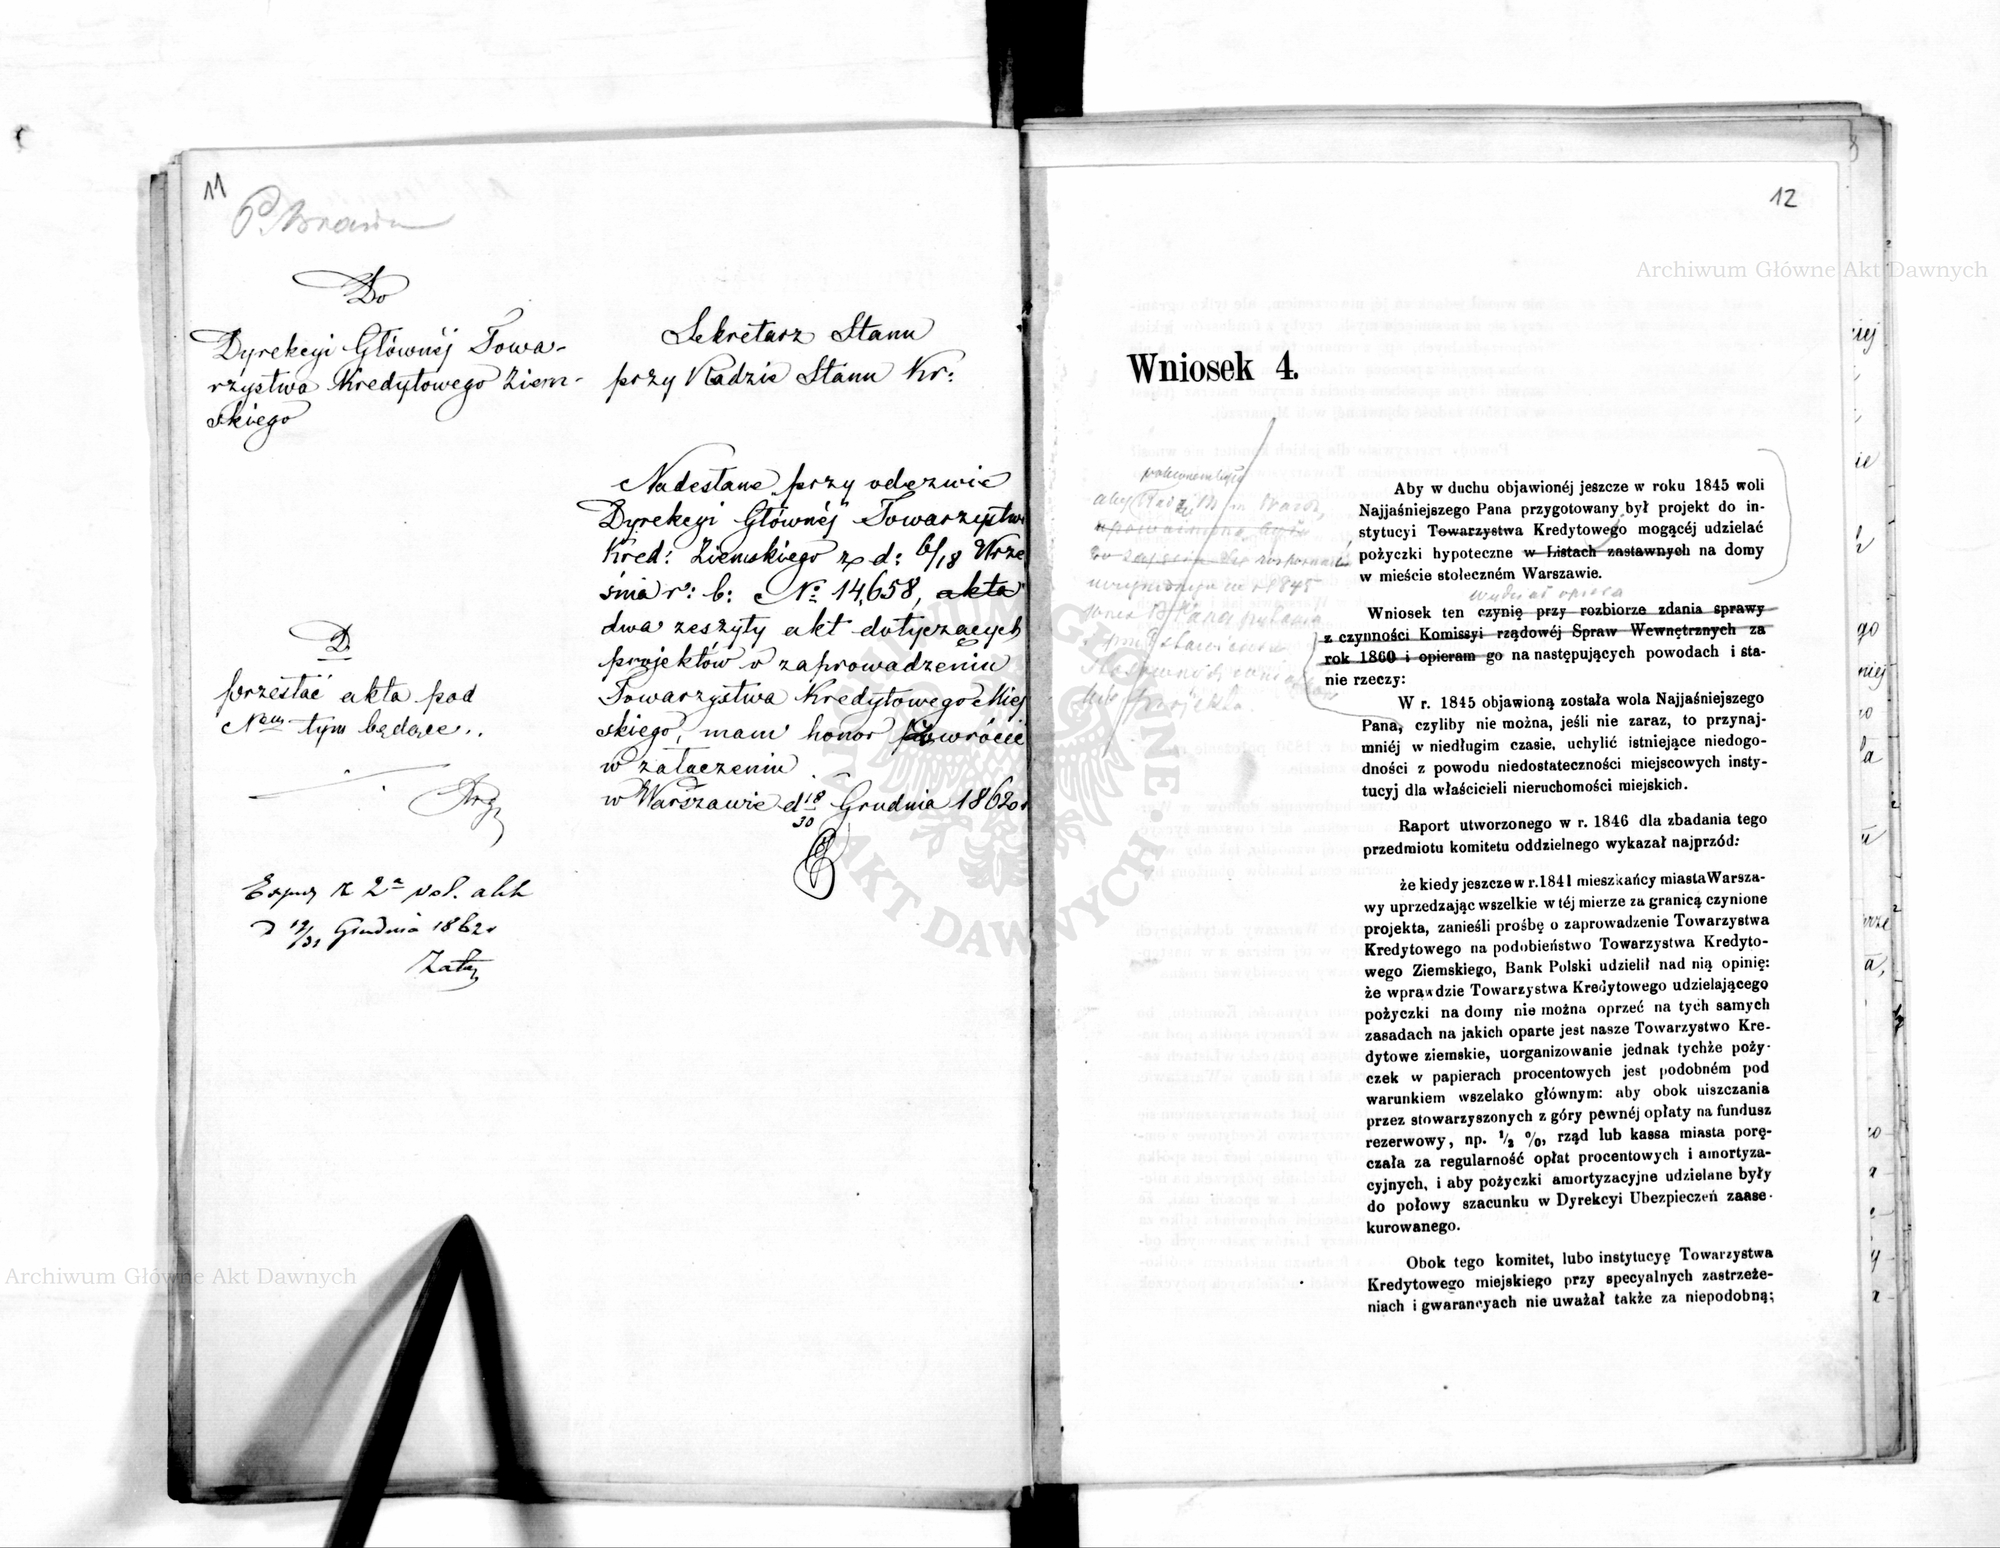 11
Do
Dyrekcyi Głównéj Towa-
rzystwa Kredytowego Ziem-
skiego
D.
przesłać akta pod
Nem tym będące..
Expm z 2a vol. akt
D 19/31 Grudnia 1862 r
Sekretarz Stanu
przy Radzie Stanu Kr:
Nadesłane przy odezwie
Dyrekcyi Głównéj Towarzystwa
Kred: Ziemskiego z d: 6/18 Wrze
śnia r: b: No 14,658, akta
dwa zeszyty akt dotyczących
projektów o zaprowadzeniu
Towarzystwa Kredytowego Miej
skiego, mam honor powrócić
w załączeniu.
w Warszawie d 18/30 Grudnia 1862 r
12
Wniosek 4.
aby
w r 1845
Aby w duchu objawionéj jeszcze w roku 1845 woli
Najjaśniejszego Pana przygotowany był projekt do in-
stytucyi Towarzystwa Kredytowego mogącéj udzielać
pożyczki hypoteczne w Listach zastawnych na domy
w mieście stołeczném Warszawie.
Wniosek ten czynię przy rozbiorze zdania sprawy
z czynności Komissyi rządowéj Spraw Wewnętrznych za
rok 1860 i opieram go na następujących powodach i sta-
nie rzeczy:
W r. 1845 objawioną została wola Najjaśniejszego
Pana, czyliby nie można, jeśli nie zaraz, to przynaj-
mniéj w niedługim czasie, uchylić istniejące niedogo-
dności z powodu niedostateczności miejscowych insty-
tucyj dla właścicieli nieruchomości miejskich.
Raport utworzonego w r. 1846 dla zbadania tego
przedmiotu komitetu oddzielnego wykazał najprzód:
że kiedy jeszcze w r. 1841 mieszkańcy miasta Warsza-
wy uprzedzając wszelkie w téj mierze za granicą czynione
projekta, zanieśli prośbę o zaprowadzenie Towarzystwa
Kredytowego na podobieństwo Towarzystwa Kredyto-
wego Ziemskiego, Bank Polski udzielił nad nią opinię:
że wprawdzie Towarzystwa Kredytowego udzielającego
pożyczki na domy nie można oprzeć na tych samych
zasadach na jakich oparte jest nasze Towarzystwo Kre-
dytowe ziemskie, uorganizowanie jednak tychże poży-
czek w papierach procentowych jest podobném pod
warunkiem wszelako głównym: aby obok uiszczania
przez stowarzyszonych z góry pewnéj opłaty na fundusz
rezerwowy, np. ½ %, rząd lub kassa miasta porę-
czała za regularność opłat procentowych i amortyza-
cyjnych, i aby pożyczki amortyzacyjne udzielane były
do połowy szacunku w Dyrekcyi Ubezpieczeń zaase-
kurowanego.
Obok tego komitet, lubo instytucyę Towarzystwa
Kredytowego miejskiego przy specyalnych zastrzeże-
niach i gwarancyach nie uważał także za niepodobną;
Archiwum Główne Akt Dawnych
Archiwum Główne Akt Dawnych
ARCHIWUM GŁÓWNE AKT DAWNYCH